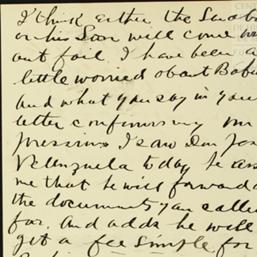 I think either the
or his Son will come
out fail. I have been a
little worried about
And what you say in you
letter confirming m
pressions I saw Don Jos
Velenzuela today he as
me that he will forward
the documents you called
for. And adds he will
get a fee Simple for